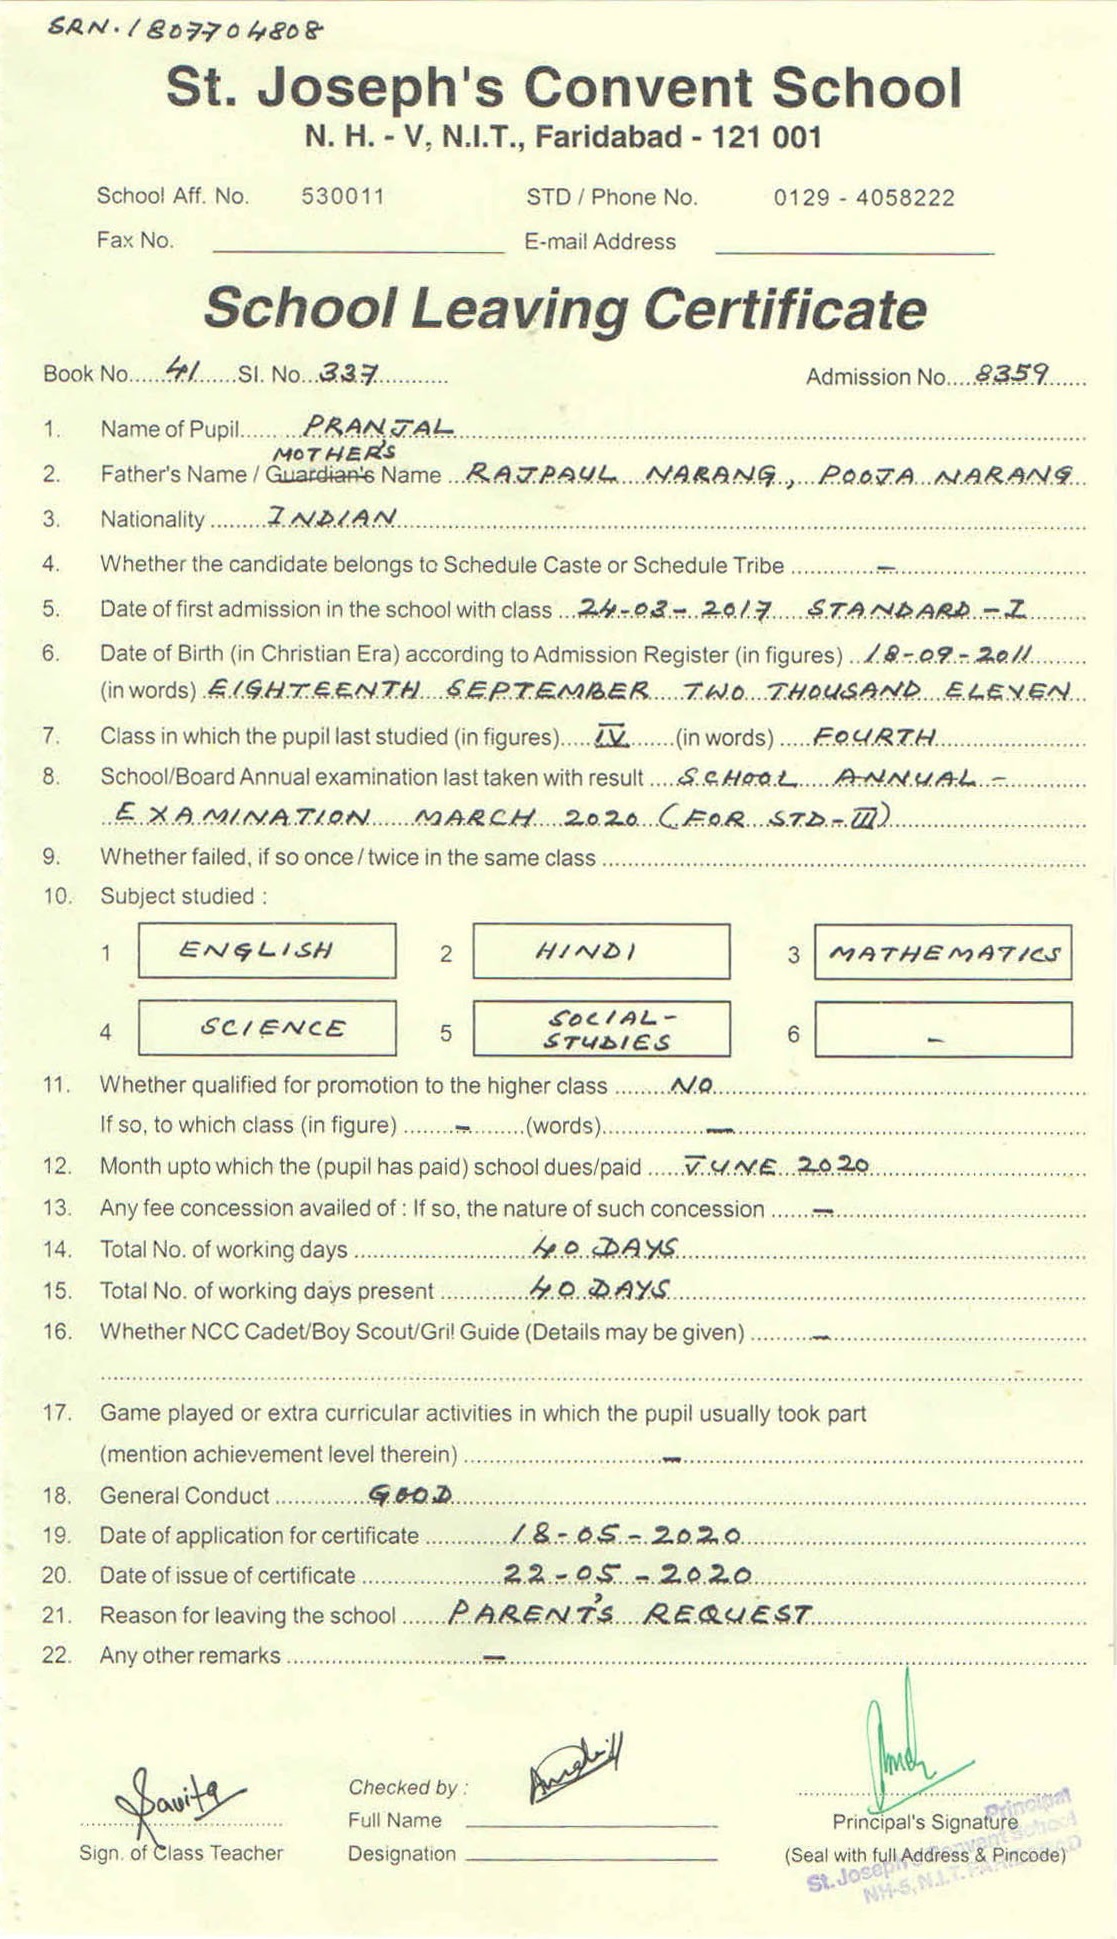 SRN. 1807704808
St. Joseph's Convent School
N. H. - V, N.I.T., Faridabad - 121 001
School Aff. No. 530011 STD / Phone No. 0129 - 4058222
Fax No. E-mail Address
School Leaving Certificate
Book No......41......Sl. No...337........... Admission No....8359......
1. Name of Pupil...... PRANJAL
MOTHER'S
2. Father's Name / Guardian's Name ..RAJPAUL NARANG, POOJA NARANG
3. Nationality ........INDIAN
4. Whether the candidate belongs to Schedule Caste or Schedule Tribe ............–
5. Date of first admission in the school with class ...24-03-2017 STANDARD - I
6. Date of Birth (in Christian Era) according to Admission Register (in figures) ..18-09-2011
(in words) EIGHTEENTH SEPTEMBER TWO THOUSAND ELEVEN
7. Class in which the pupil last studied (in figures).....IV.......(in words) .....FOURTH
8. School/Board Annual examination last taken with result ....SCHOOL ANNUAL -
EXAMINATION MARCH 2020 (FOR STD-III)
9. Whether failed, if so once / twice in the same class
10. Subject studied :
1 ENGLISH 2 HINDI 3 MATHEMATICS
4 SCIENCE 5 SOCIAL-STUDIES 6 –
11. Whether qualified for promotion to the higher class ........NO
If so, to which class (in figure) ........–........(words)............–
12. Month upto which the (pupil has paid) school dues/paid .....JUNE 2020
13. Any fee concession availed of : If so, the nature of such concession ......–
14. Total No. of working days .................. 40 DAYS
15. Total No. of working days present ............ 40 DAYS
16. Whether NCC Cadet/Boy Scout/Gril Guide (Details may be given) .........–
17. Game played or extra curricular activities in which the pupil usually took part
(mention achievement level therein) ....................–
18. General Conduct .............GOOD
19. Date of application for certificate ............18-05-2020
20. Date of issue of certificate ...................22-05-2020
21. Reason for leaving the school ......PARENT'S REQUEST
22. Any other remarks .......................–
Savita
Checked by :
Full Name
Principal's Signature
Sign. of Class Teacher Designation (Seal with full Address & Pincode)
Principal
St. Joseph's Convent School
NH-5, N.I.T. FARIDABAD